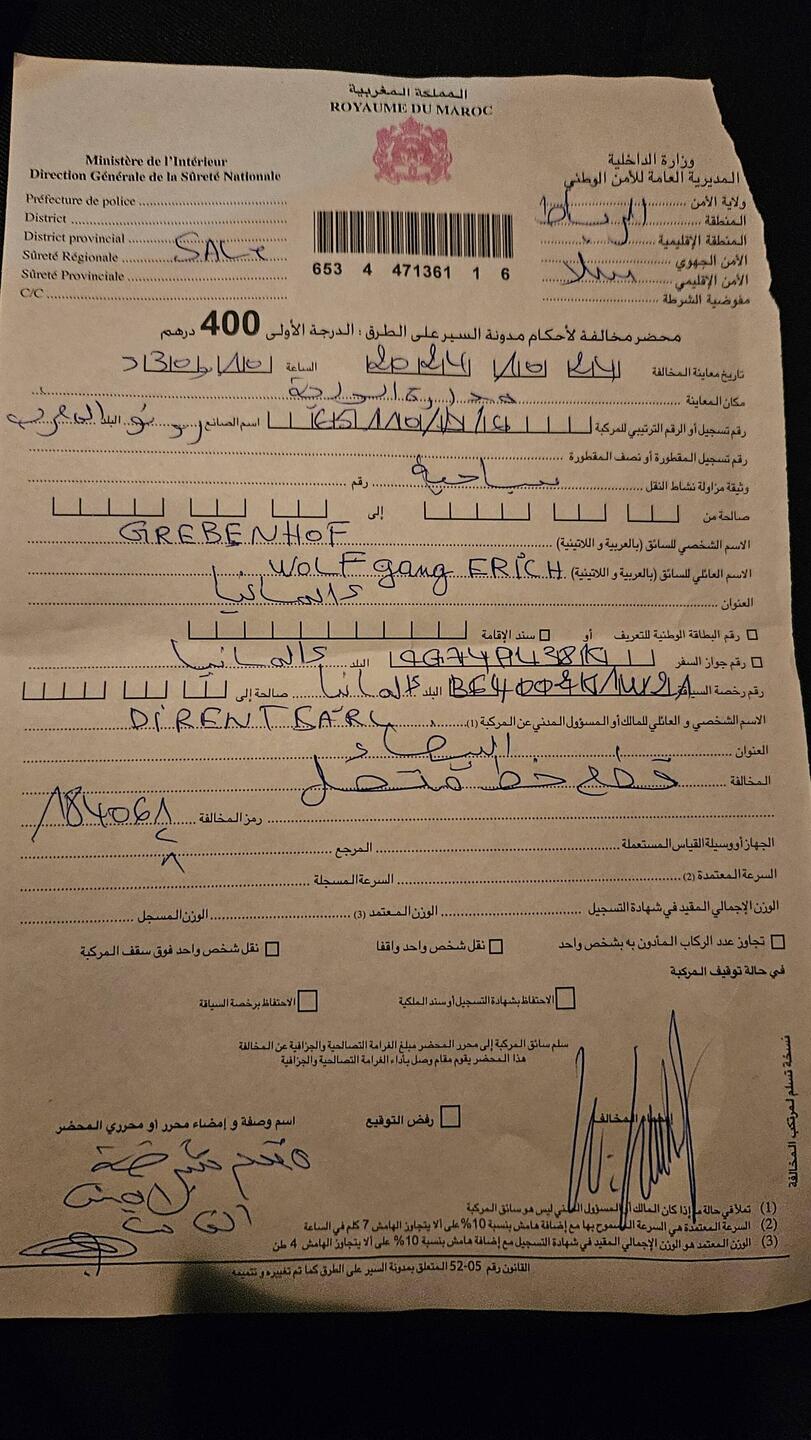 المملكة المغربية
ROYAUME DU MAROC
Ministère de l'Intérieur
Direction Générale de la Sûreté Nationale
Préfecture de police
District
District provincial
Sûreté Régionale SALE
Sûreté Provinciale
C/C
653 4 471361 1 6
وزارة الداخلية
المديرية العامة للأمن الوطني
ولاية الأمن الرباط
المنطقة
المنطقة الإقليمية
الأمن الجهوي سلا
الأمن الإقليمي
مفوضية الشرطة
محضر مخالفة لأحكام مدونة السير على الطرق : الدرجة الأولى 400 درهم
تاريخ معاينة المخالفة 24 10 2024 الساعة
مكان المعاينة
رقم تسجيل أو الرقم الترتيبي للمركبة اسم الصانع رونو البلد المغرب
رقم تسجيل المقطورة أو نصف المقطورة
وثيقة مزاولة نشاط النقل سياحية رقم
صالحة من إلى
الاسم الشخصي للسائق (بالعربية و اللاتينية) GREBENHOF
الاسم العائلي للسائق (بالعربية و اللاتينية) WOLFgang ERICH
العنوان المانيا
رقم البطاقة الوطنية للتعريف أو سند الإقامة
رقم جواز السفر البلد المانيا
رقم رخصة السياقة البلد المانيا صالحة إلى
الاسم الشخصي و العائلي للمالك أو المسؤول المدني عن المركبة (1) DIRENTCAR
العنوان البيضاء
المخالفة قطع خط متصل
رمز المخالفة 184061
الجهاز أو وسيلة القياس المستعملة المرجع
السرعة المعتمدة (2) السرعة المسجلة
الوزن الإجمالي المقيد في شهادة التسجيل الوزن المعتمد (3) الوزن المسجل
تجاوز عدد الركاب المأذون به بشخص واحد نقل شخص واحد واقفا نقل شخص واحد فوق سقف المركبة
في حالة توقيف المركبة
الاحتفاظ بشهادة التسجيل أو سند الملكية الاحتفاظ برخصة السياقة
سلم سائق المركبة إلى محرر المحضر مبلغ الغرامة التصالحية والجزافية عن المخالفة
هذا المحضر يقوم مقام وصل بأداء الغرامة التصالحية والجزافية
إمضاء المخالف رفض التوقيع اسم وصفة و إمضاء محرر او محرري المحضر
نسخة تسلم لمرتكب المخالفة
(1) تملأ في حالة ما إذا كان المالك أو المسؤول المدني ليس هو سائق المركبة
(2) السرعة المعتمدة هي السرعة المسموح بها مع إضافة هامش بنسبة 10% على ألا يتجاوز الهامش 7 كلم في الساعة
(3) الوزن المعتمد هو الوزن الإجمالي المقيد في شهادة التسجيل مع إضافة هامش بنسبة 10% على ألا يتجاوز الهامش 4 طن
القانون رقم 05-52 المتعلق بمدونة السير على الطرق كما تم تغييره و تتميمه